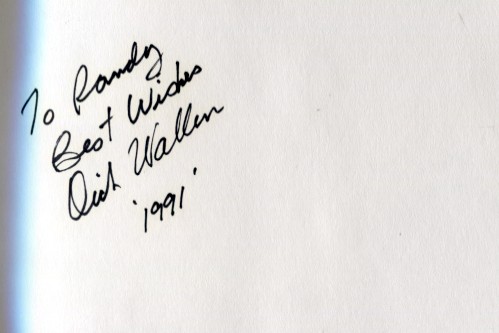 To Randy
Best Wishes
Dick Wallen
'1991'